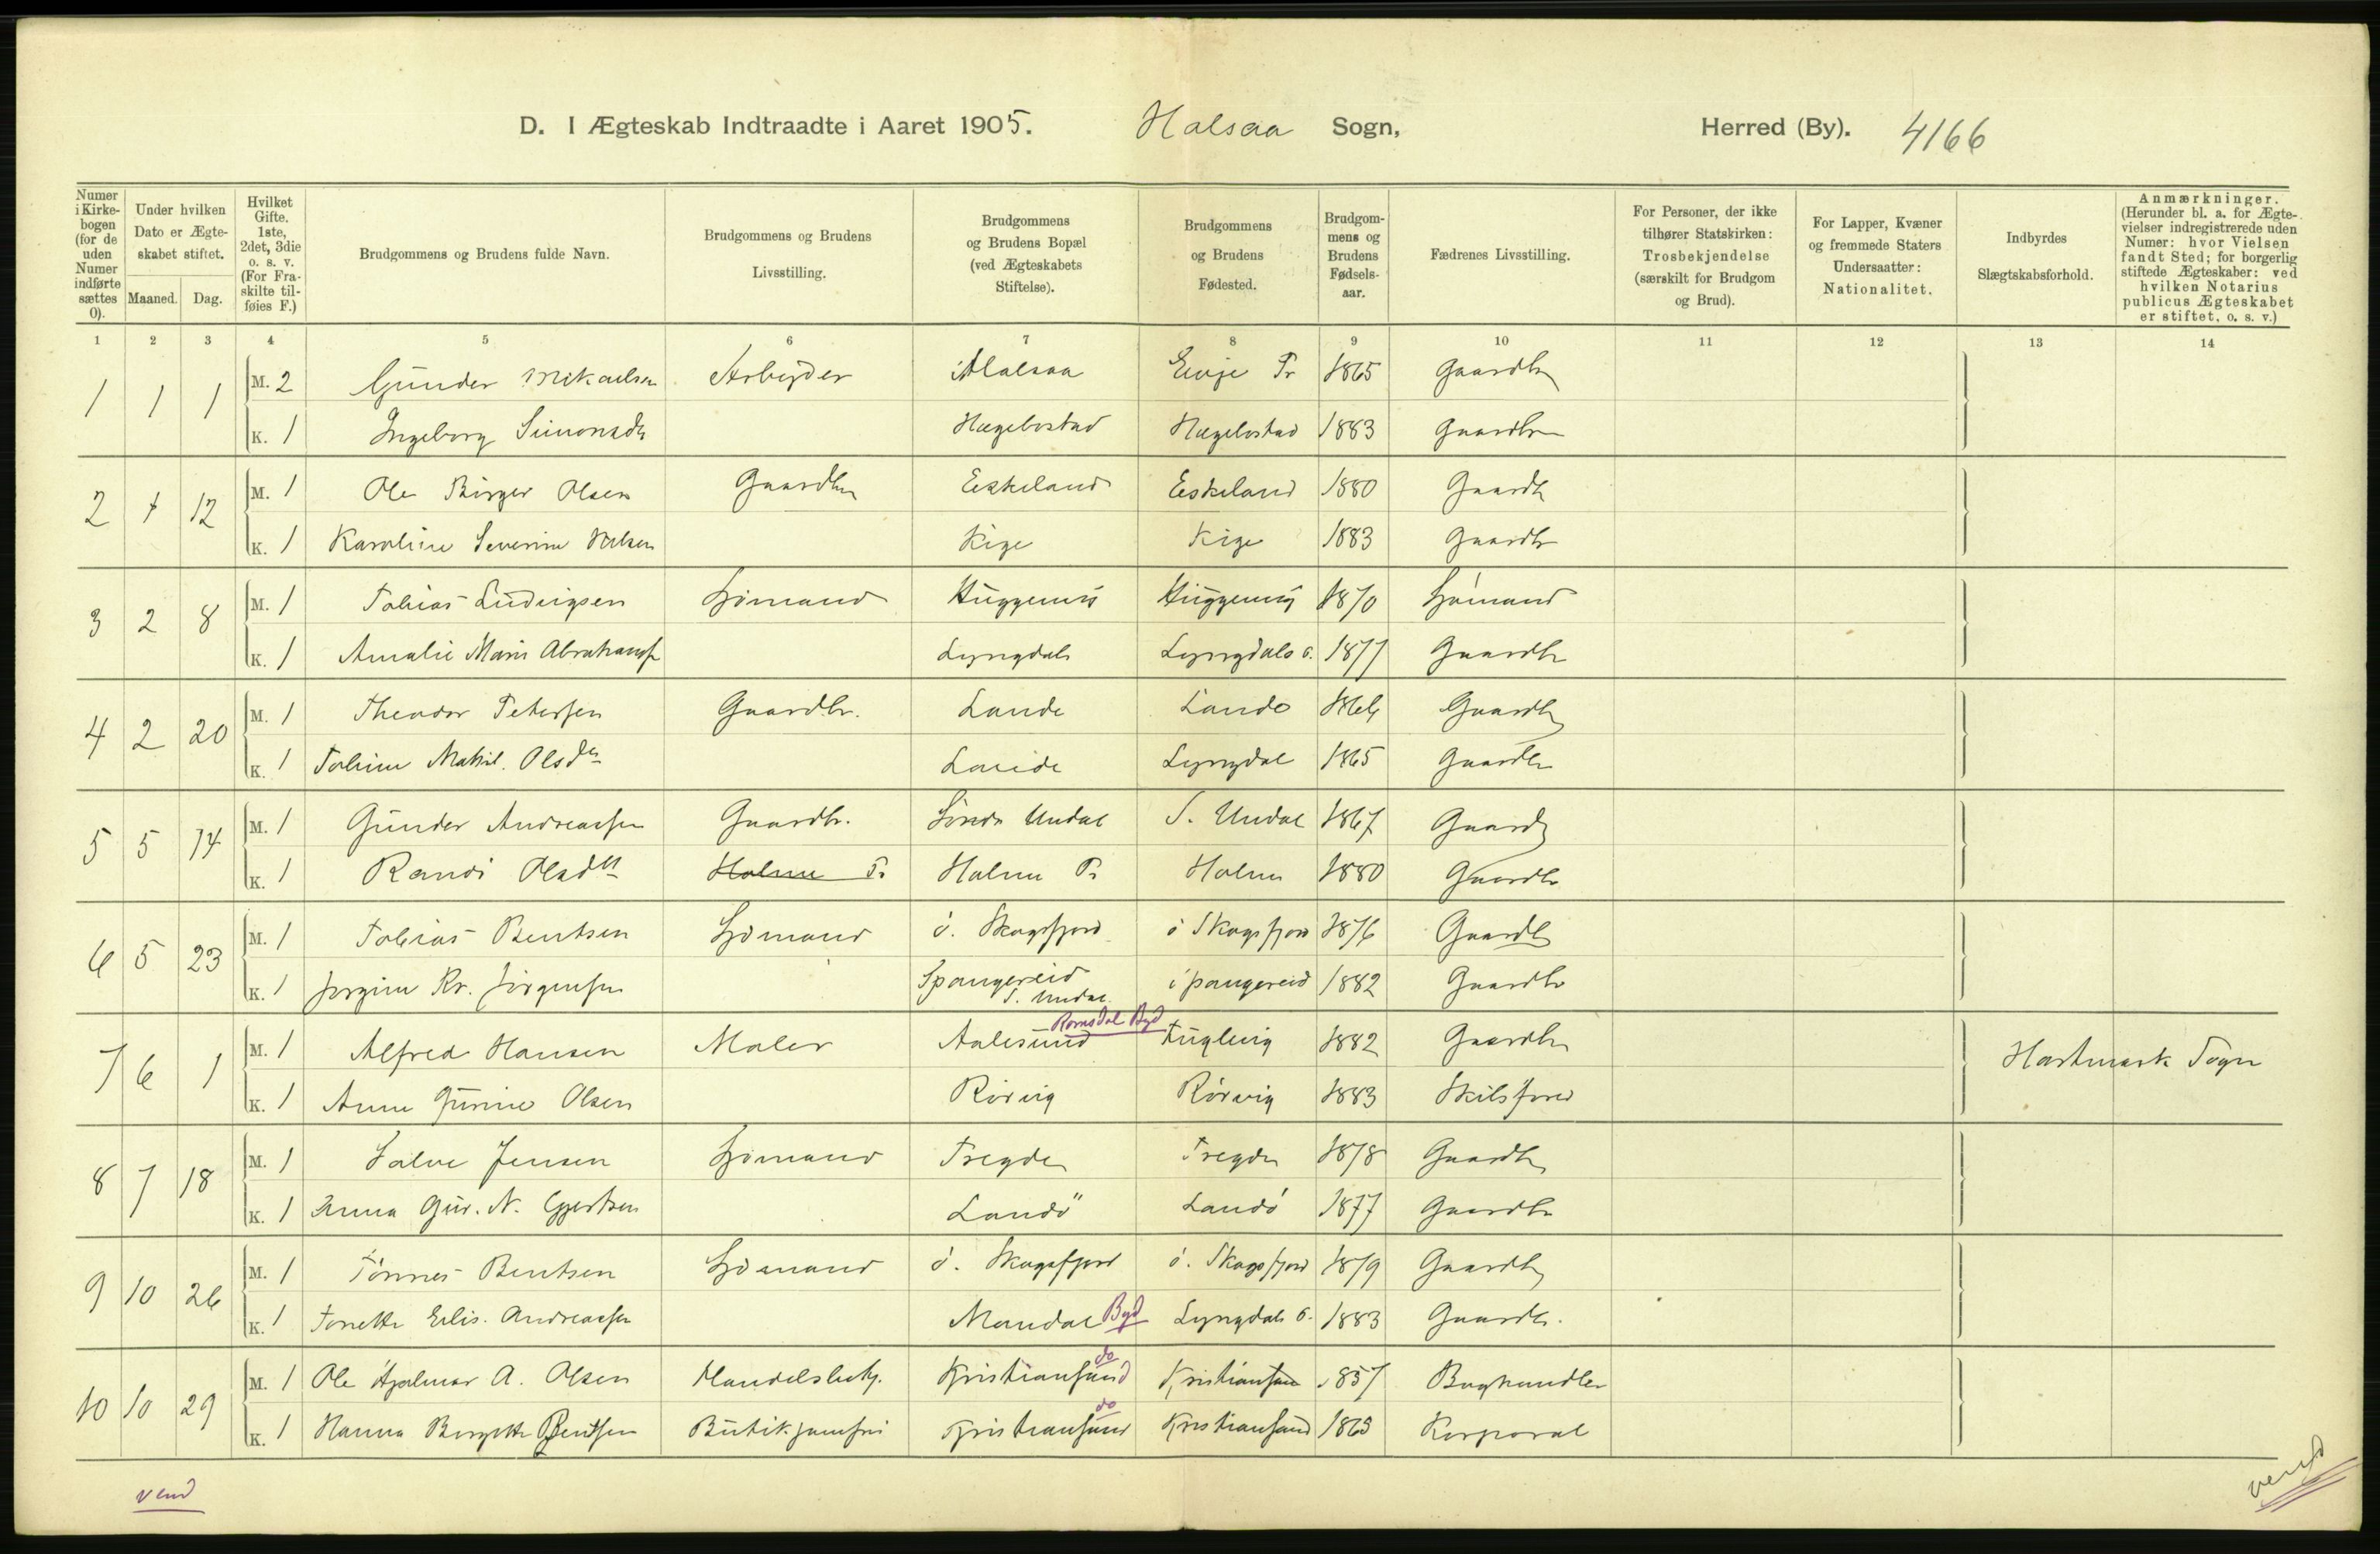 D. I Ægteskab Indtraadte i Aaret 1905. Halsaa Sogn, Herred (By). 4166
Numer i Kirkebogen (for de uden Numer indførte sættes 0).
Under hvilken Dato er Ægteskabet stiftet.
Maaned. Dag.
Hvilket Gifte. 1ste, 2det, 3die o. s. v. (For Fraskilte tilføies F.)
Brudgommens og Brudens fulde Navn.
Brudgommens og Brudens Livsstilling.
Brudgommens og Brudens Bopæl (ved Ægteskabets Stiftelse).
Brudgommens og Brudens Fødested.
Brudgommens og Brudens Fødselsaar.
Fædrenes Livsstilling.
For Personer, der ikke tilhører Statskirken: Trosbekjendelse (særskilt for Brudgom og Brud).
For Lapper, Kvæner og fremmede Staters Undersaatter: Nationalitet.
Indbyrdes Slægtskabsforhold.
Anmærkninger. (Herunder bl. a. for Ægtevielser indregistrerede uden Numer: hvor Vielsen fandt Sted; for borgerlig stiftede Ægteskaber: ved hvilken Notarius publicus Ægteskabet er stiftet, o. s. v.)
1 2 3 4 5 6 7 8 9 10 11 12 13 14
1 1 1 M. 2 Gunder Mikaelsen Arbeider Halsaa Evje Pr 1865 Gaardbr
K. 1 Ingeborg Simonsdtr Hægebostad Hægebostad 1883 Gaardbr
2 1 12 M. 1 Ole Birger Olsen Gaardbr Eskeland Eskeland 1880 Gaardb
K. 1 Karoline Severine Kige Kige 1883 Gaardbr
3 2 8 M. 1 Tobias Ludvigsen Sjømand 1870 Sjømand
K. 1 Amalie Marie Abrahamsen Lyngdals Lyngdals 1877 Gaardbr
4 2 20 M. 1 Theodor Petersen Gaardbr. Lande Lande Gaardb
K. 1 Tobine Mathil. Olsdtr Lande Lyngdal 1865 Gaardbr
5 5 14 M. 1 Gunder Andreassen Gaardbr. Søndr Undal S. Undal 1867 Gaardb
K. 1 Randi Olsdtr Holme Pr Holme Pr Holme 1880 Gaardbr
6 5 23 M. 1 Tobias Bentsen Sjømand ö. Skogsfjord ö Skogsfjord 1876 Gaardb
K. 1 Jørgine Kr. Jörgensen Spangereid S. Undal Spangereid 1882 Gaardbr
7 6 1 M. 1 Alfred Hansen Maler Aalesund Romsdal Byd Fuglevig 1882 Gaardbr Hartmark Sogn
K. 1 Anne Gurine Olsen Rörvig Rörvig 1883
8 7 18 M. 1 Salve Jensen Sjømand Tregde Tregde 1878 Gaardbr
K. 1 Anna Gur. N. Gjertsen Landö Landö 1877 Gaardbr
9 10 26 M. 1 Tönnes Bentsen Sjømand ö. Skogsfjord ö. Skogsfjord 1879 Gaardbr
K. 1 Tonette Elis. Andreassen Mandal Byd Lyngdals 1883 Gaardbr.
10 10 29 M. 1 Ole Hjalmar A. Olsen Handelsbetj. Kristiansand do Kristiansand 1857 Boghandler
K. 1 Hanna Birgitte Bentsen Butikjomfru Kristiansand do Kristiansand Korporal
vend
vend